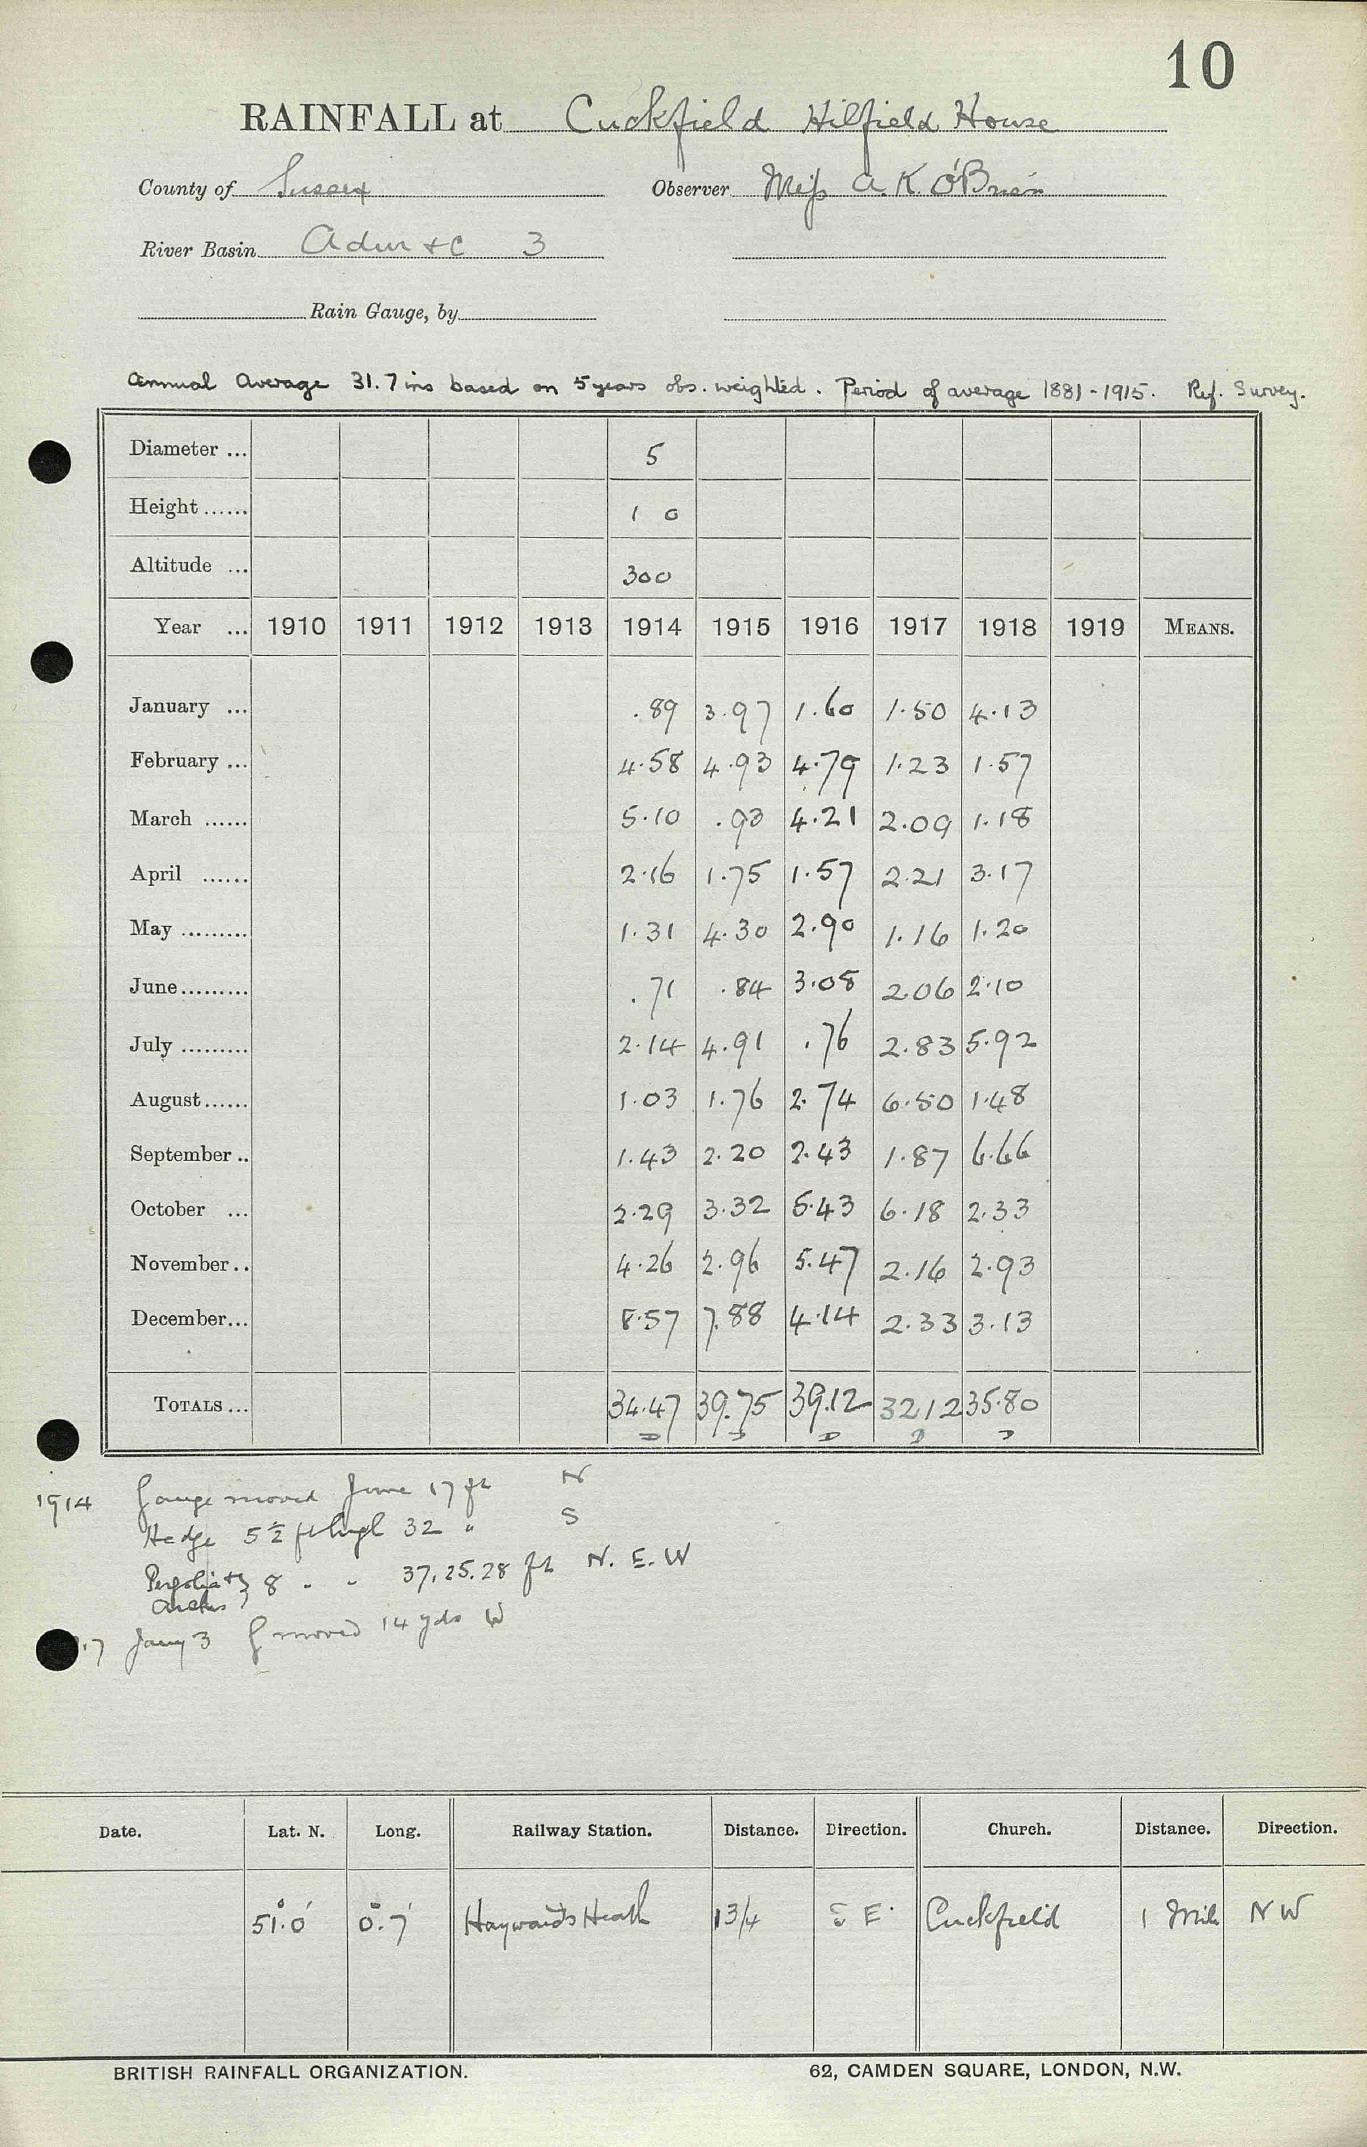 10
RAINFALL at Cuckfield Hilfield House
County of Sussex Observer Miss A. K. O'Brien
River Basin Adur &c 3
Rain Gauge, by
Annual Average 31.7 ins based on 5 years obs. weighted. Period of average 1881-1915. Ref. Survey.
Diameter ... 5
Height ...... 1 0
Altitude ... 300
Year ... 1910 1911 1912 1913 1914 1915 1916 1917 1918 1919 MEANS.
January ... .89 3.97 1.60 1.50 4.13
February ... 4.58 4.93 4.79 1.23 1.57
March ...... 5.10 .93 4.21 2.09 1.18
April ...... 2.16 1.75 1.57 2.21 3.17
May ......... 1.31 4.30 2.90 1.16 1.20
June......... .71 .84 3.08 2.06 2.10
July ......... 2.14 4.91 .76 2.83 5.92
August...... 1.03 1.76 2.74 6.50 1.48
September .. 1.43 2.20 2.43 1.87 6.66
October ... 2.29 3.32 5.43 6.18 2.33
November .. 4.26 2.96 5.47 2.16 2.93
December... 8.57 7.88 4.14 2.33 3.13
TOTALS ... 34.47 39.75 39.12 32.12 35.80
1914 Gauge moved June 17 ft N
Hedge 5½ ft high 32 " S
8 " " 37, 25, 28 ft N. E. W
17 Jany 3 G moved 14 yds W
Date. Lat. N. Long. Railway Station. Distance. Direction. Church. Distance. Direction.
51°.0' 0°.7' Haywards Heath 1 3/4 S E. Cuckfield 1 Mile NW
BRITISH RAINFALL ORGANIZATION. 62, CAMDEN SQUARE, LONDON, N.W.